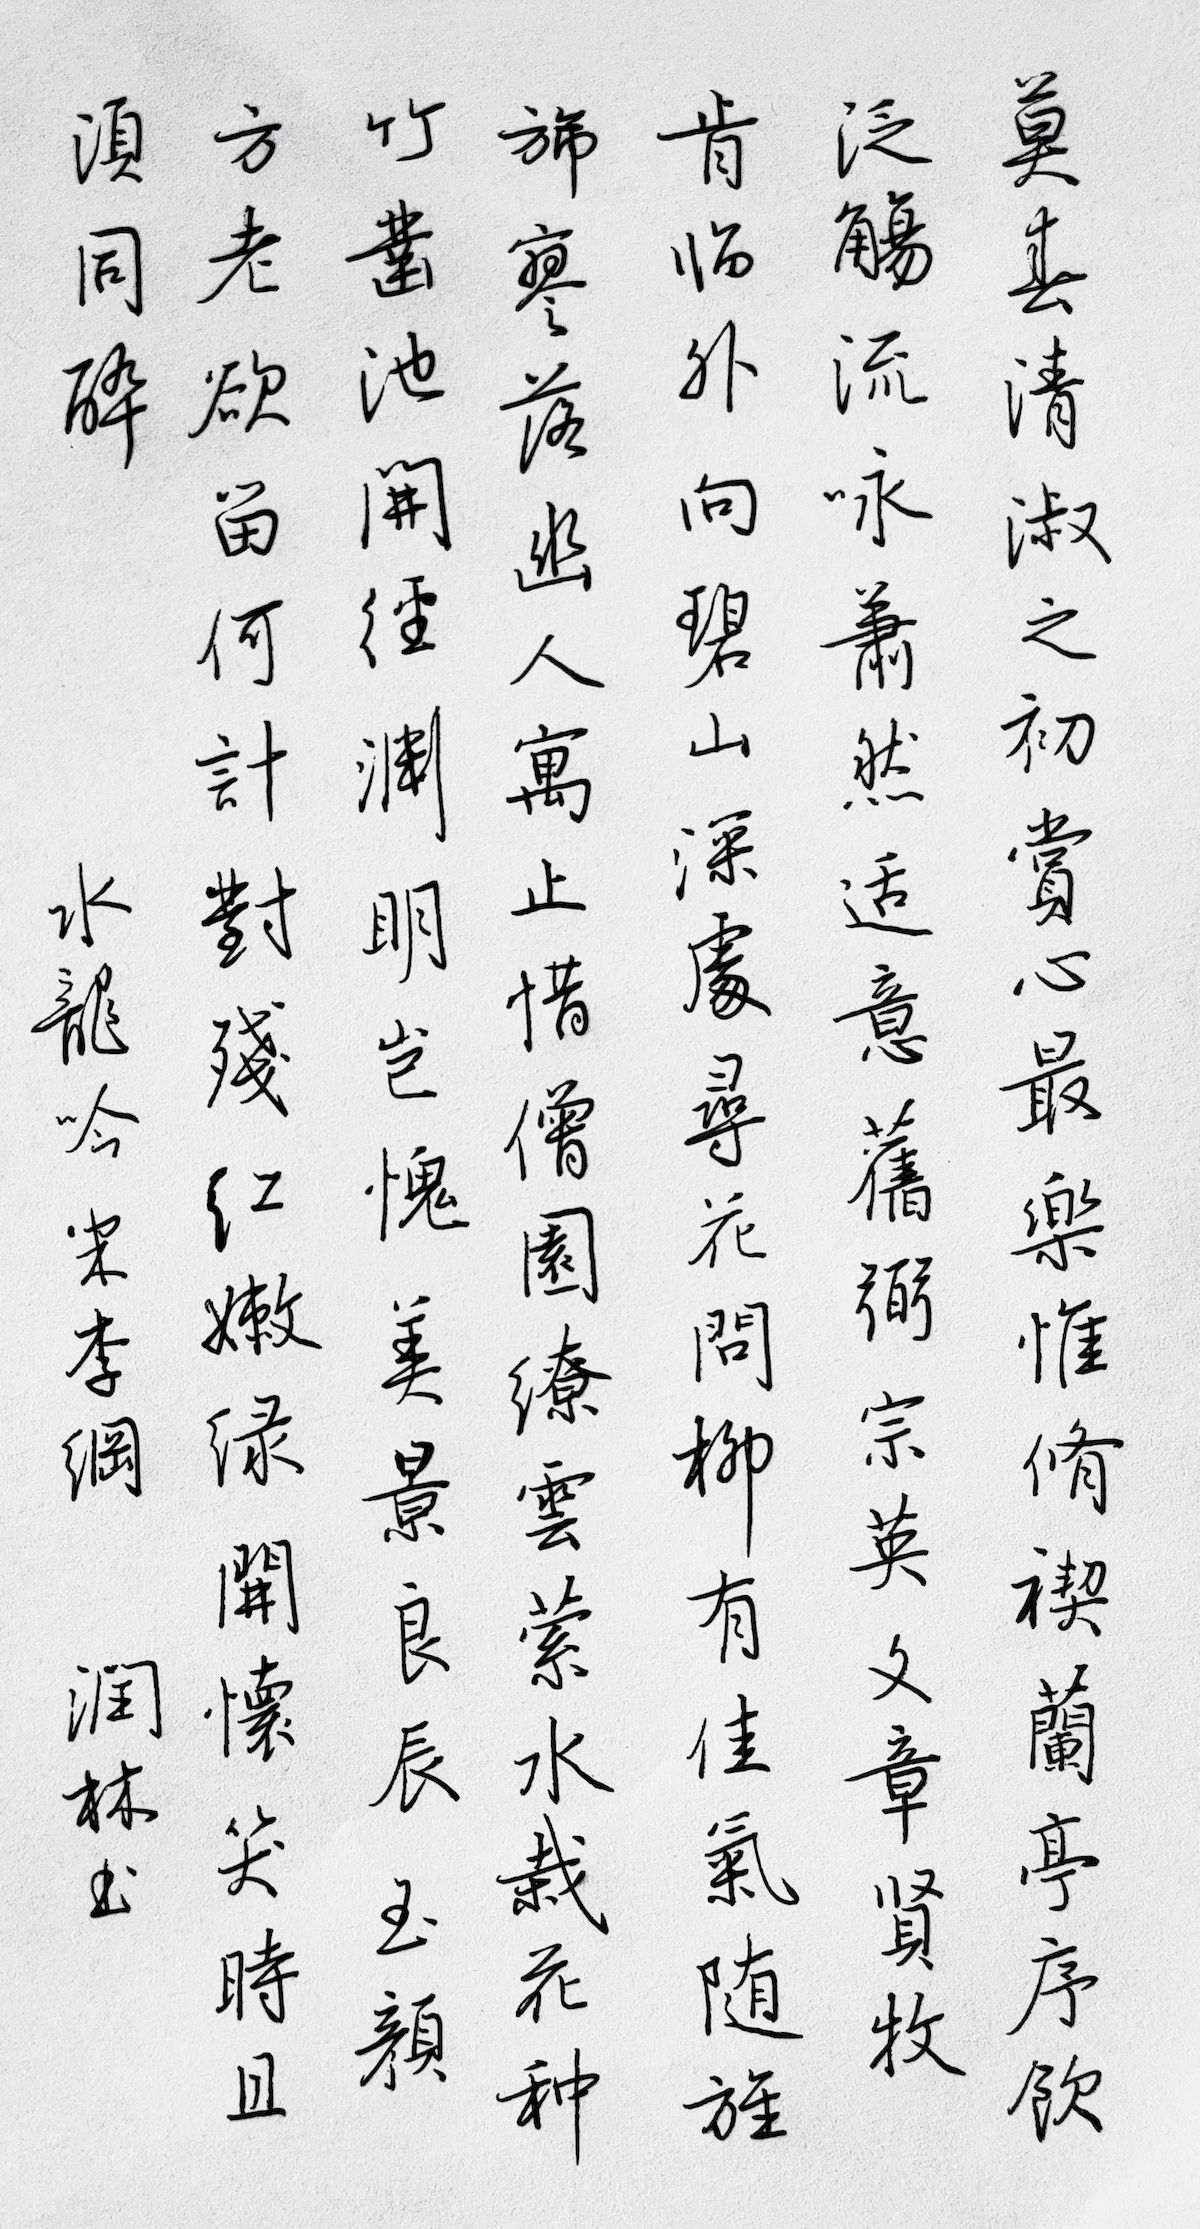 莫春清淑之初賞心最樂惟脩禊蘭亭序飲
泛觴流咏蕭然适意舊弼宗英文章賢牧
肯临外向碧山深處尋花問柳有佳氣随旌
旆寥落幽人寓止惜僧園繚雲縈水栽花种
竹凿池開徑渊明岂愧美景良辰玉顏
方老欲留何計對殘红嫩绿開懷笑時且
須同醉
水龍吟宋李綱
润林书